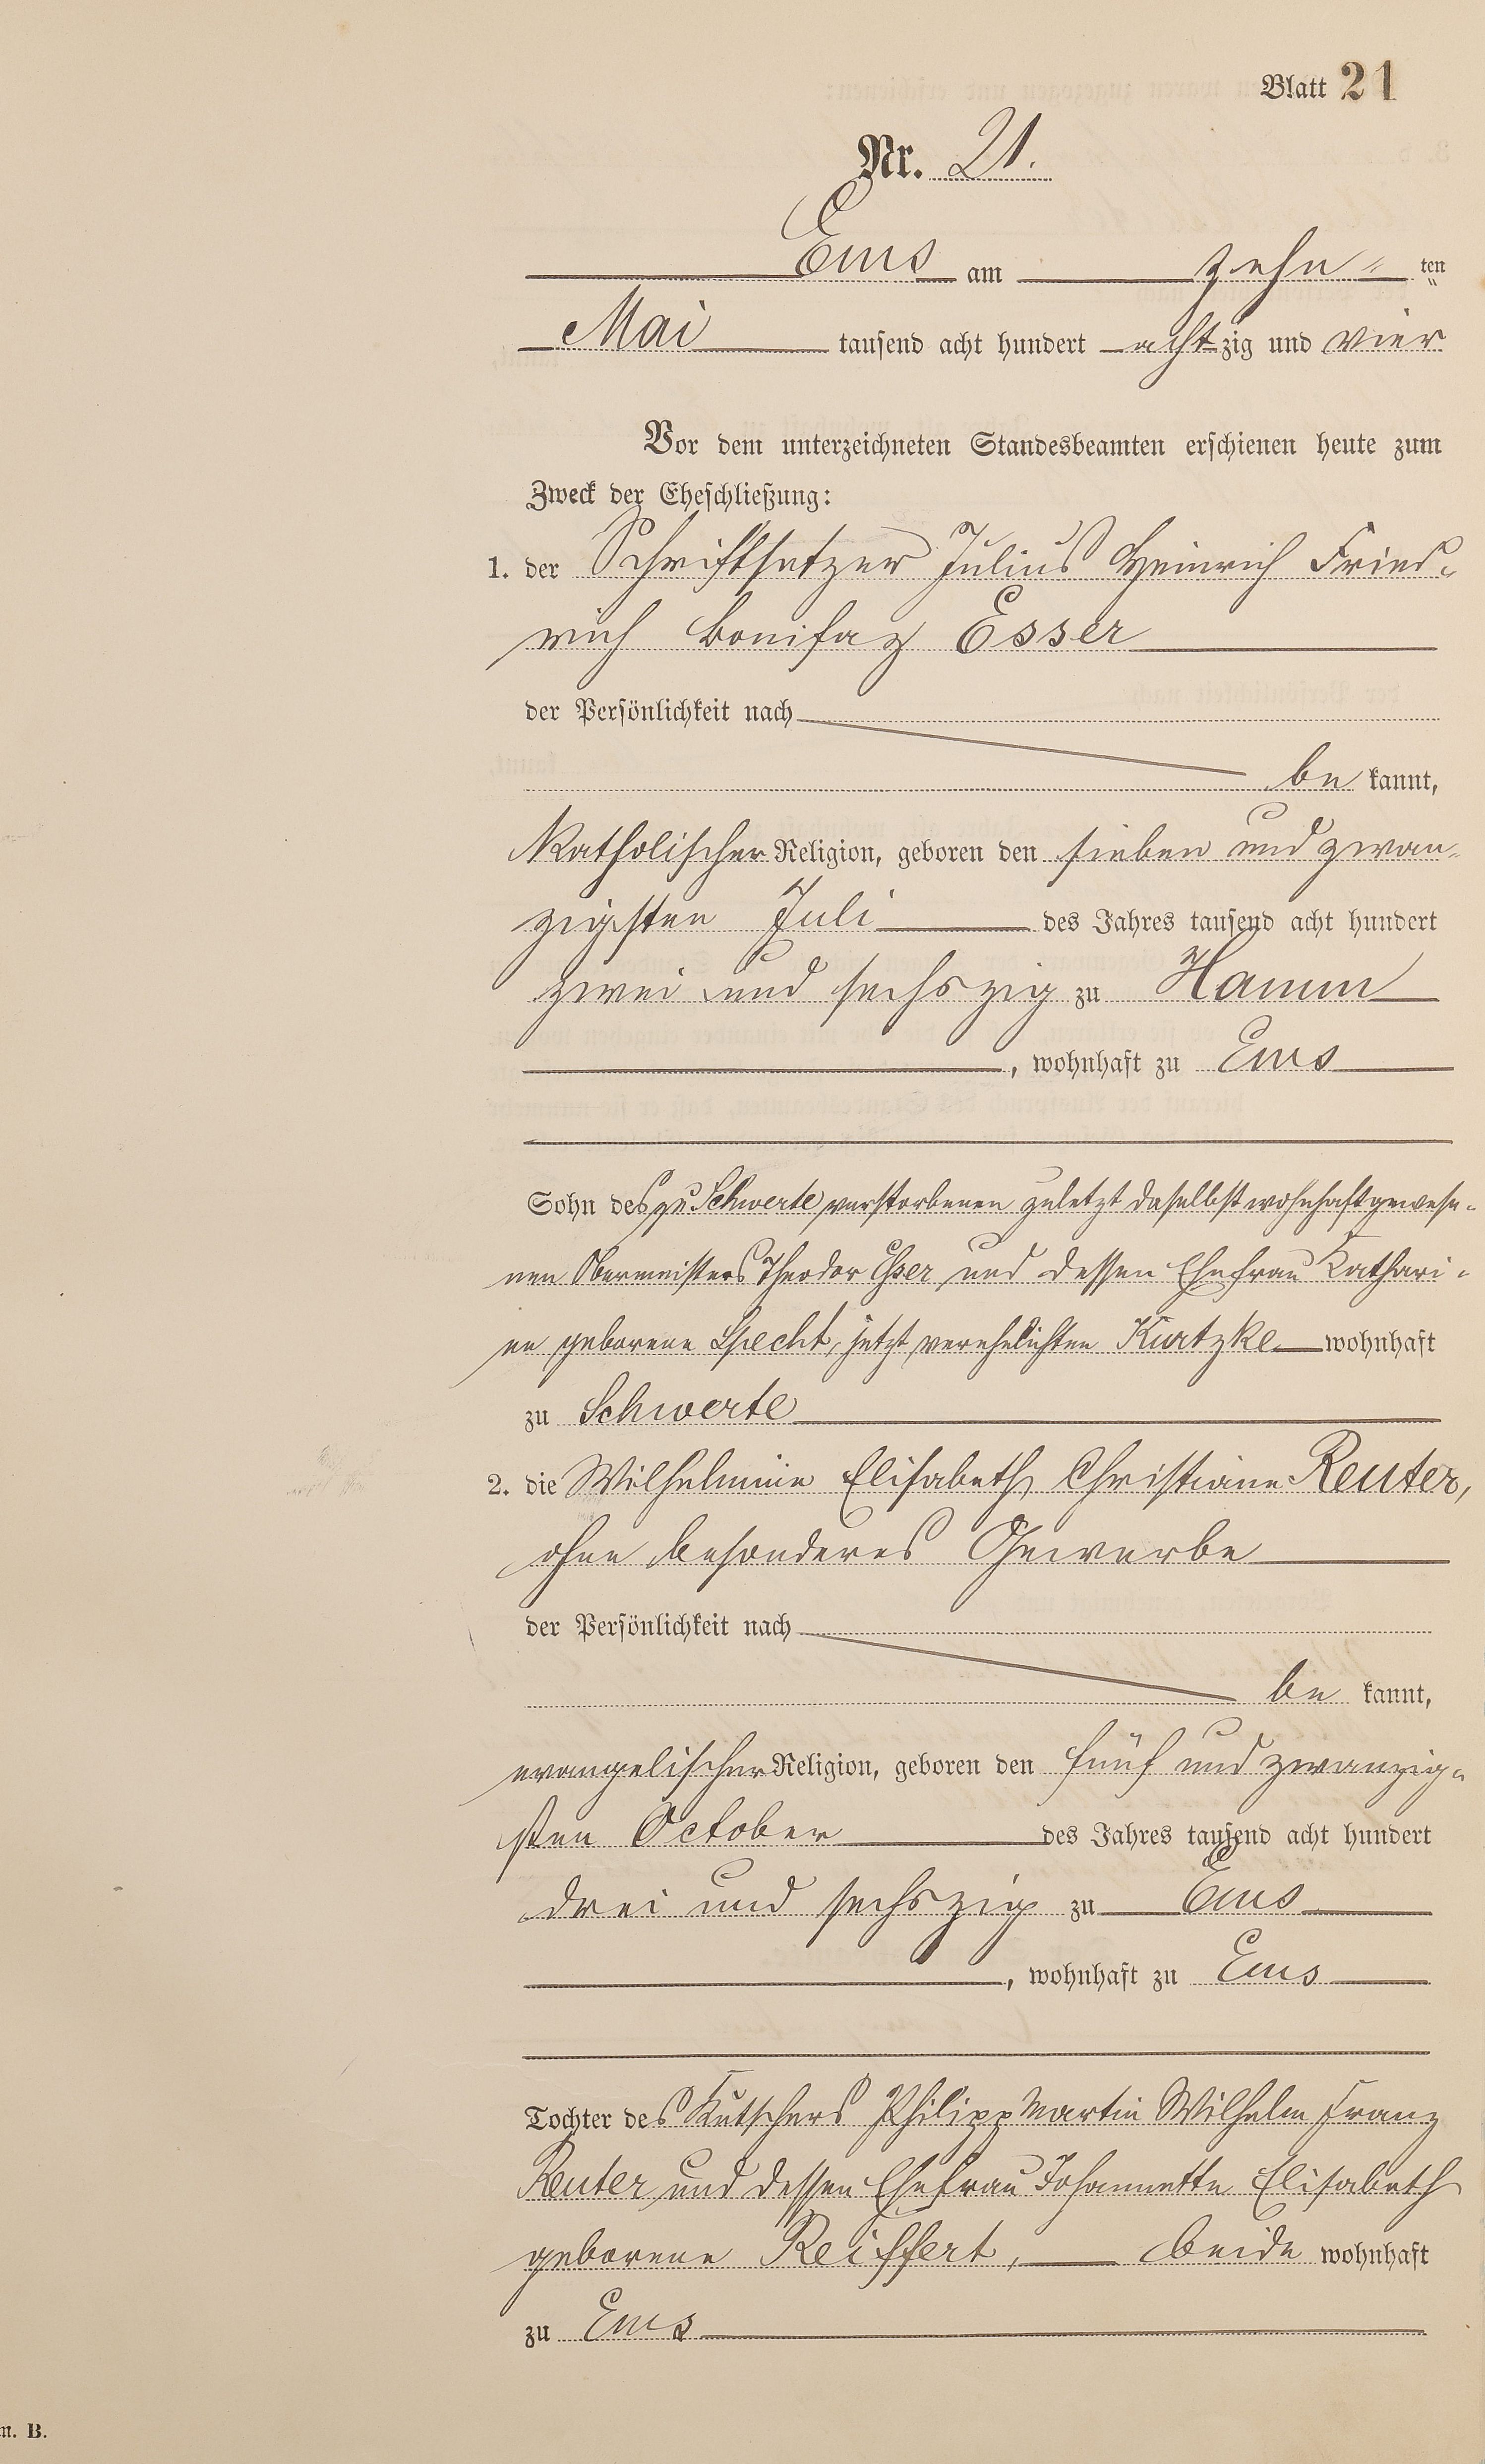 Blatt 21
Nr. 21.
Ems am zehn- ten
Mai tausend acht hundert achtzig und vier
Vor dem unterzeichneten Standesbeamten erschienen heute zum
Zweck der Eheschließung:
1. der Schriftsetzer Julius Heinrich Fried-
rich Bonifaz Esser
der Persönlichkeit nach
be kannt,
katholischer Religion, geboren den sieben und zwan-
zigsten Juli des Jahres tausend acht hundert
zwei und sechszig zu Hamm
, wohnhaft zu Ems
Sohn des zu Schwerte verstorbenen zuletzt daselbst wohnhaft gewese-
nen Obermeisters Theodor Esser und dessen Ehefrau Kathari-
ne geborene Specht, jetzt verehelichten Kurtzke wohnhaft
zu Schwerte
2. die Wilhelmine Elisabeth Christiane Reuter,
ohne besonderes Gewerbe
der Persönlichkeit nach
be kannt,
evangelischer Religion, geboren den fünf und zwanzig-
sten October des Jahres tausend acht hundert
drei und sechszig zu Ems
, wohnhaft zu Ems
Tochter des Kutschers Philipp Martin Wilhelm Franz
Reuter und dessen Ehefrau Johannette Elisabeth
geborene Reiffert, beide wohnhaft
zu Ems
n. B.